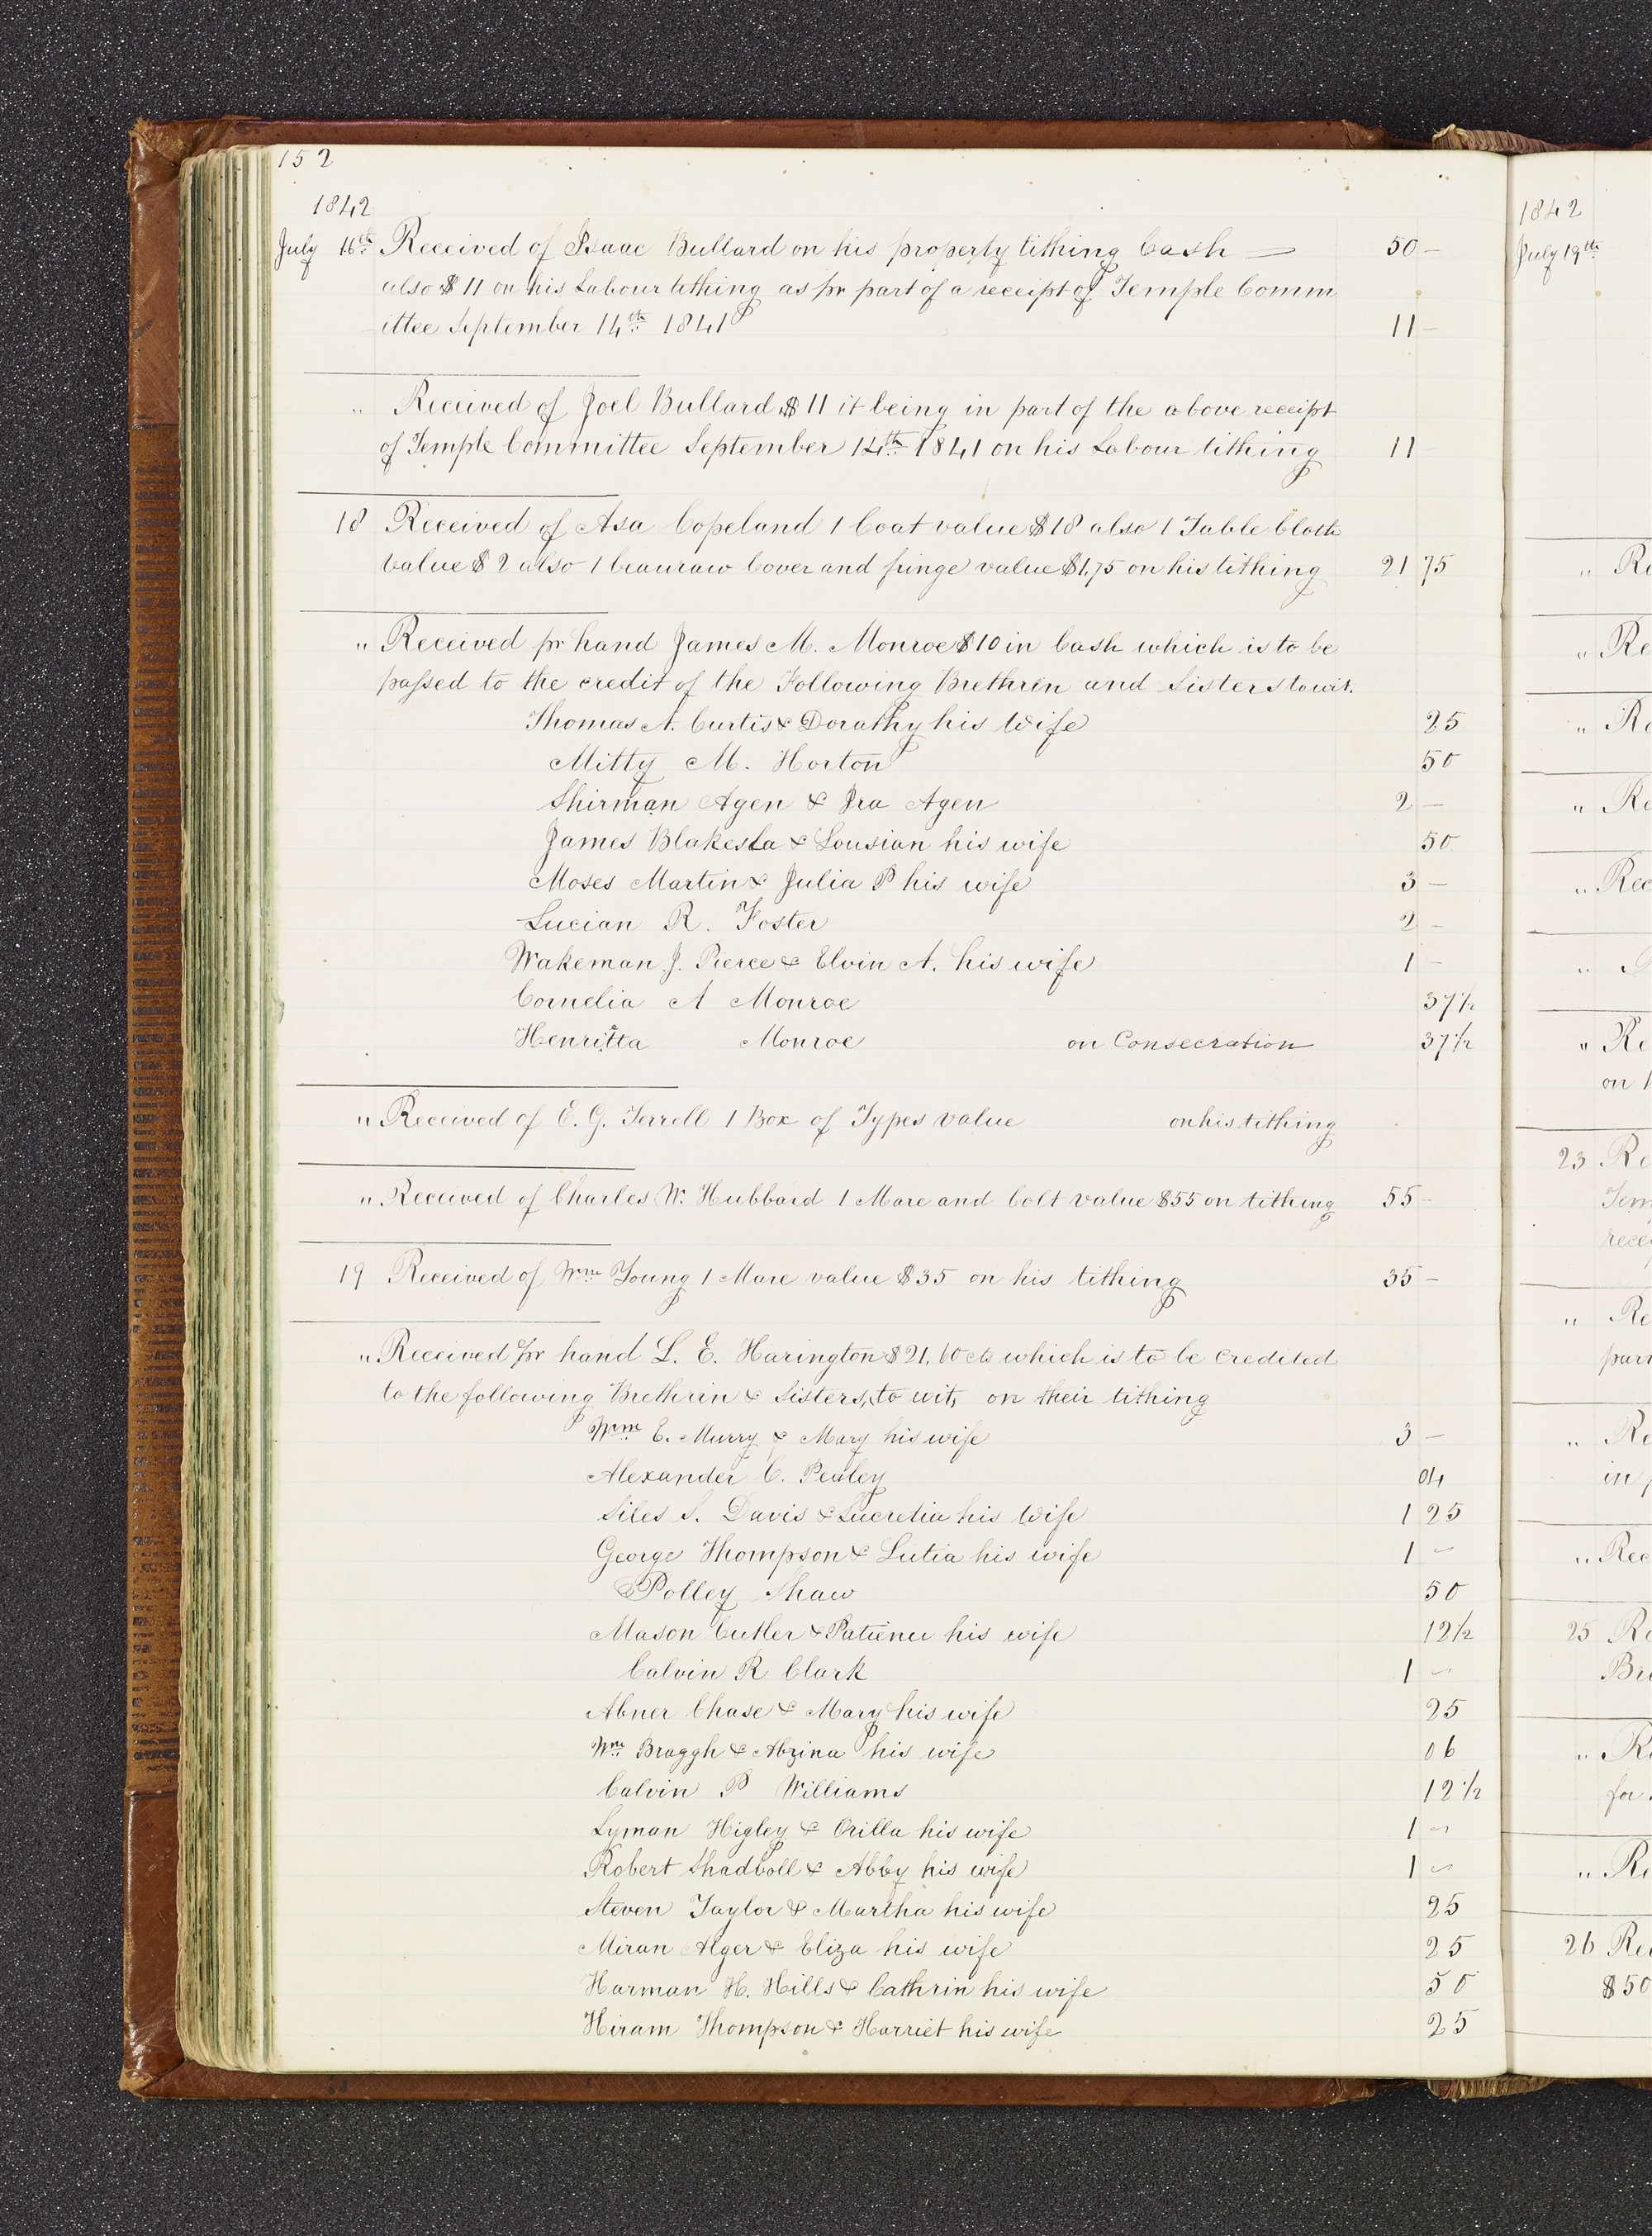 152
1842
July 16th Received of Isaac Bullard on his property tithing Cash — 50 –
also $ 11 on his Labour tithing as pr part of a receipt of Temple Comm
ittee September 14th 1841 11 –
" Received of Joel Bullard $ 11 it being in part of the above receipt
of Temple Committee September 14th 1841 on his Labour tithing 11
18 Received of Asa Copeland 1 Coat value $ 18 also 1 Table Cloth
Value $ 2 also 1 beauraw Cover and fringe value $1,75 on his tithing 21 75
" Received pr hand James M. Monroe $10 in Cash which is to be
passed to the credit of the Following Brethren and Sisters to wit.
Thomas A. Curtis & Dorathy his Wife 25
Mitty M. Horton 50
Shirman Agen & Ira Agen 2 –
James Blakesla & Lousian his wife 50
Moses Martin & Julia P his wife 3 –
Lucian R. Foster 2 –
Wakeman J. Pierce & Elvin A. his wife 1 –
Cornelia A Monroe 37½
Henritta Monroe on Consecration 37½
" Received of E. G. Terrell 1 Box of Types value on his tithing
" Received of Charles W. Hubbard 1 Mare and Colt value $55 on tithing 55 –
19 Received of Wm Young 1 Mare value $35 on his tithing 35 –
" Received pr hand L. E. Harington $21,60 cts which is to be Credited
to the following Brethrin & Sisters, to wit, on their tithing
Wm E. Murry & Mary his wife 3 –
Alexander C. Pealey 04
Siles S. Davis & Lucretia his Wife 1 25
George Thompson & Lutia his wife 1 –
Polley Shaw 50
Mason Cutler & Patience his wife 12½
Calvin R Clark 1 –
Abner Chase & Mary his wife 25
Wm Braggh & Abzina his wife 06
Calvin P Williams 12½
Lyman Higley & Orilla his wife 1 –
Robert Shadboll & Abby his wife 1 –
Steven Taylor & Martha his wife 25
Miran Alger & Eliza his wife 25
Harman H. Hills & Cathrin his wife 50
Hiram Thompson & Harriet his wife 25
1842
July 19th
" Re
" Re
" Re
" Re
" Rec
"
" Re
on
23 Re
Tem
rece
" Re
part
" Re
in
" Rec
25 Re
Br
" Re
for
" Re
26 Re
$ 50